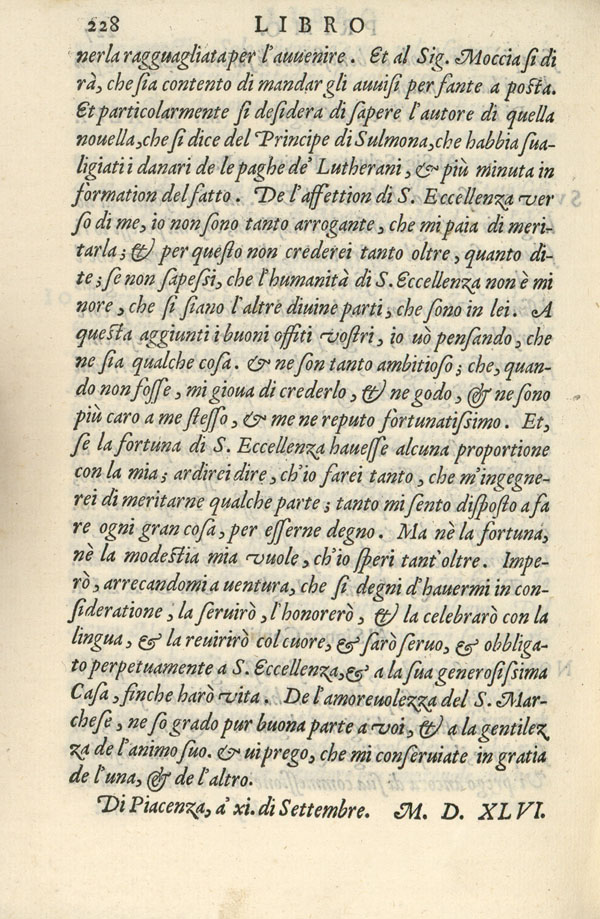 228 LIBRO
nerla ragguagliata per l'auuenire. Et al Sig. Moccia si di
rà, che sia contento di mandar gli auuisi per fante a posta.
Et particolarmente si desidera di sapere l'autore di quella
nouella, che si dice del Principe di Sulmona, che habbia sua-
ligiati i danari de le paghe de' Lutherani, & più minuta in
formation del fatto. De l'affettion di S. Eccellenza ver
so di me, io non sono tanto arrogante, che mi paia di meri-
tarla; & per questo non crederei tanto oltre, quanto di-
te; se non sapessi, che l'humanità di S. Eccellenza non è mi
nore, che si siano l'altre diuine parti, che sono in lei. A
questa aggiunti i buoni offiti vostri, io uò pensando, che
ne sia qualche cosa. & ne son tanto ambitioso; che, quan-
do non fosse, mi gioua di crederlo, & ne godo, & ne sono
più caro a me stesso, & me ne reputo fortunatissimo. Et,
se la fortuna di S. Eccellenza hauesse alcuna proportione
con la mia; ardirei dire, ch'io farei tanto, che m'ingegne-
rei di meritarne qualche parte; tanto mi sento disposto a fa
re ogni gran cosa, per esserne degno. Ma nè la fortuna,
nè la modestia mia vuole, ch'io speri tant'oltre. Impe-
rò, arrecandomi a uentura, che si degni d'hauermi in con-
sideratione, la seruirò, l'honorerò, & la celebrarò con la
lingua, & la reuirirò col cuore, & sarò seruo, & obbliga-
to perpetuamente a S. Eccellenza, & a la sua generosissima
Casa, finche harò vita. De l'amoreuolezza del S. Mar-
chese, ne so grado pur buona parte a voi, & a la gentilez
za de l'animo suo. & ui prego, che mi conseruiate in gratia
de l'una, & de l'altro.
Di Piacenza, a' xi. di Settembre. M. D. XLVI.